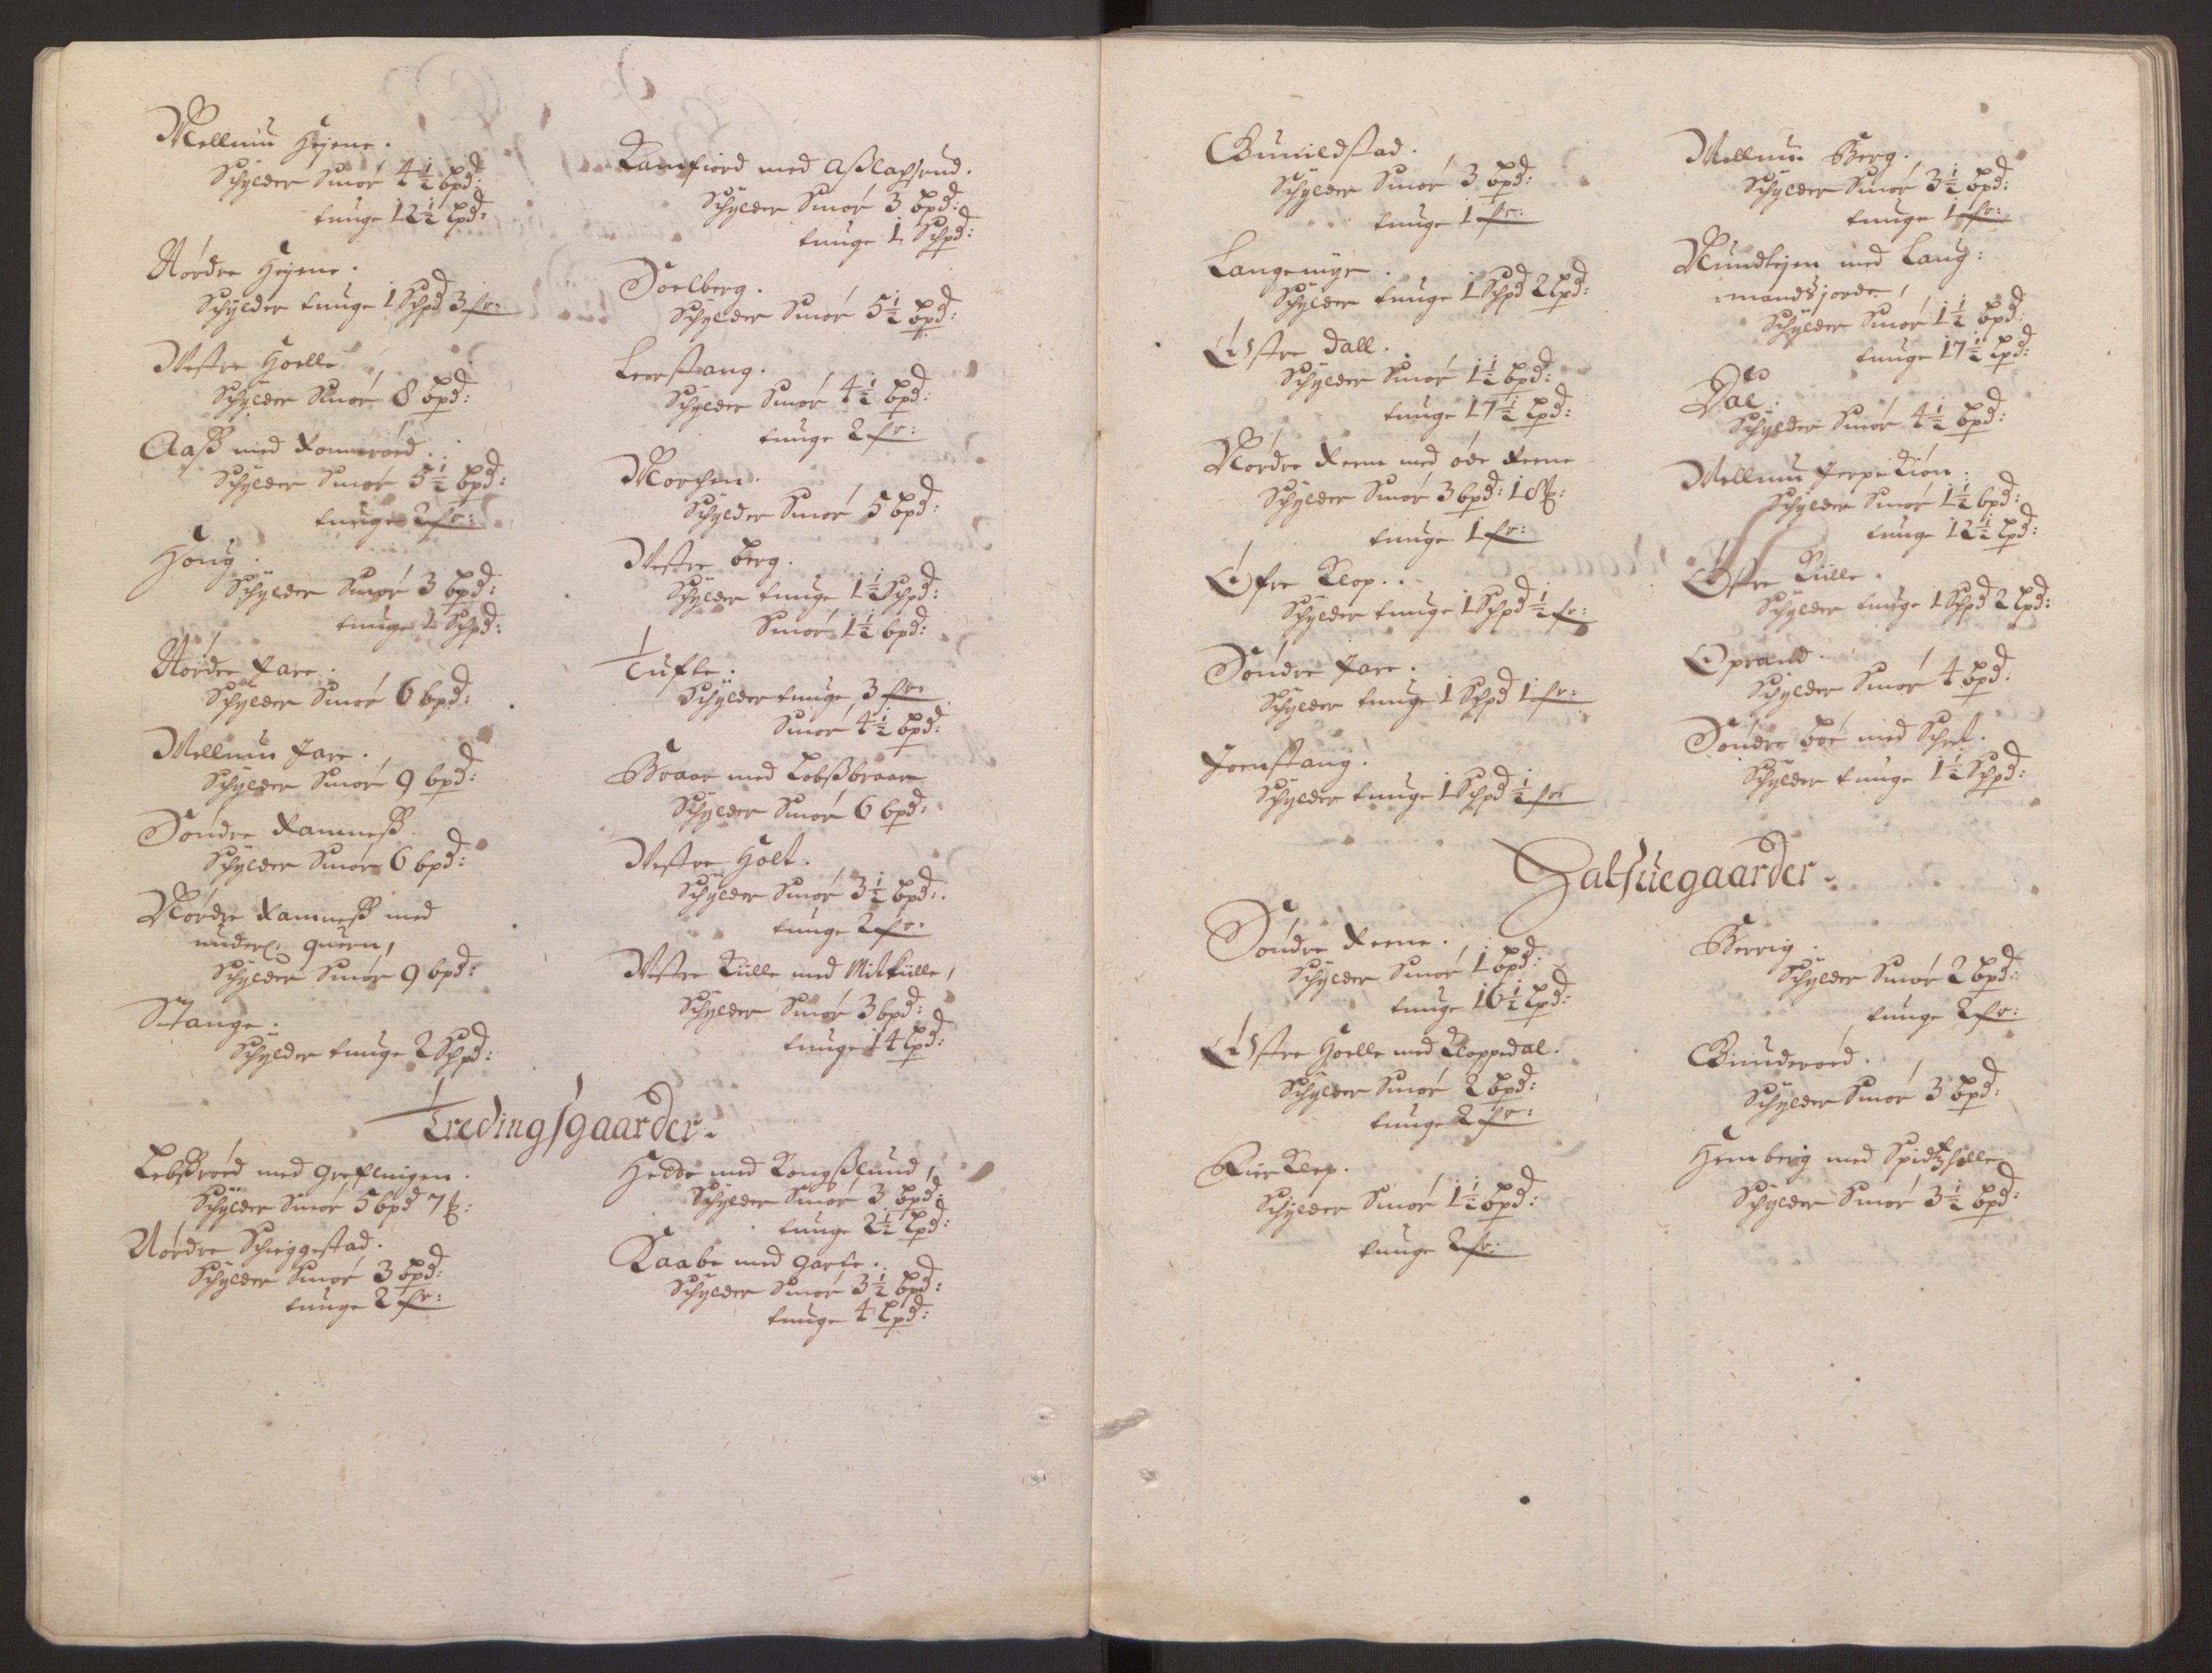 Mellum Hejene.
Schylder Smör 4½ bpd:
tunge 12½ Lpd:
Nördre Hejene.
Schylder tunge 1 Schpd 3 fr:
Westre Hoelle
Schylder Smör 8 bpd:
Aaß med Rommeröed.
Schylder Smör 5½ bpd:
tunge 2 fr:
Houg.
Schylder Smör 3 bpd:
tunge 1 Schpd:
Nördre Jare.
Schylder Smör 6 bpd:
Mellum Jare.
Schylder Smör 9 bpd:
Söndre Ramneß.
Schylder Smör 6 bpd:
Nördre Ramneß med
underl. quern,
Schylder Smör 9 bpd:
Stange.
Schylder tunge 2 Schpd:
Ramfiord med Aßlaksrud.
Schylder Smör 3 bpd:
tunge 1 Schpd:
Soelberg.
Schylder Smör 5½ bpd:
Leerstang.
Schylder Smör 4½ bpd:
tunge 2 fr:
Morchen.
Schylder Smör 5 bpd:
Westre berg.
Schylder tunge 1½ Schpd:
Smör 1½ bpd:
Tufte.
Schylder tunge 3 fr:
Smör 4½ bpd:
Braar med Lobßbraar
Schylder Smör 6 bpd:
Westre Holt.
Schylder Smör 3½ bpd:
tunge 2 fr:
Westre Kulle med Mitkulle,
Schylder Smör 3 bpd:
tunge 14 Lpd:
Tredingsgaarder.
Lebßröed med Greflingen.
Schylder Smör 5 bpd 7 ℔:
Nördre Schieggestad.
Schylder Smör 3 bpd:
tunge 2 fr:
Hedde med Kongßlund,
Schylder Smör 3 bpd:
tunge 2½ Lpd:
Kaabe med Garfe.
Schylder Smör 3½ bpd:
tunge 4 Lpd:
Gunildstad.
Schylder Smör 3 bpd:
tunge 1 fr:
Langemyr.
Schylder tunge 1 Schpd 2 Lpd:
Östre dall.
Schylder Smör 1½ bpd:
tunge 17½ Lpd:
Nördre Reene med öde Reene
Schylder Smör 3 bpd: 18 ℔:
tunge 1 fr:
Öfre Klop.
Schylder tunge 1 Schpd ½ fr:
Söndre Jare.
Schylder tunge 1 Schpd 1 fr:
Joenstang.
Schylder tunge 1 Schpd ½ fr:
Mellum Berg.
Schylder Smör 3½ bpd:
tunge 1 fr:
Mundtejen med Laug:
mandsjorde,
Schylder Smör 1½ bpd:
tunge 17½ Lpd:
Dal.
Schylder Smör 4½ bpd:
Mellum Jerpekiön.
Schylder Smör 1½ bpd:
tunge 12½ Lpd:
Östre Kulle.
Schylder tunge 1 Schpd 2 Lpd:
Oprand.
Schylder Smör 4 bpd:
Söndre böe med
Schylder tunge 1½ Schpd:
Halfuegaarder.
Söndre Reene.
Schylder Smör 1 bpd:
tunge 16½ Lpd:
Östre Hoelle med Kloppedal.
Schylder Smör 2 bpd:
tunge 2 fr:
Schylder Smör 1½ bpd:
tunge 2 fr:
Berrig.
Schylder Smör 2 bpd:
tunge 2 fr:
Gunderöed.
Schylder Smör 3 bpd:
Hemberig med
Schylder Smör 3½ bpd: